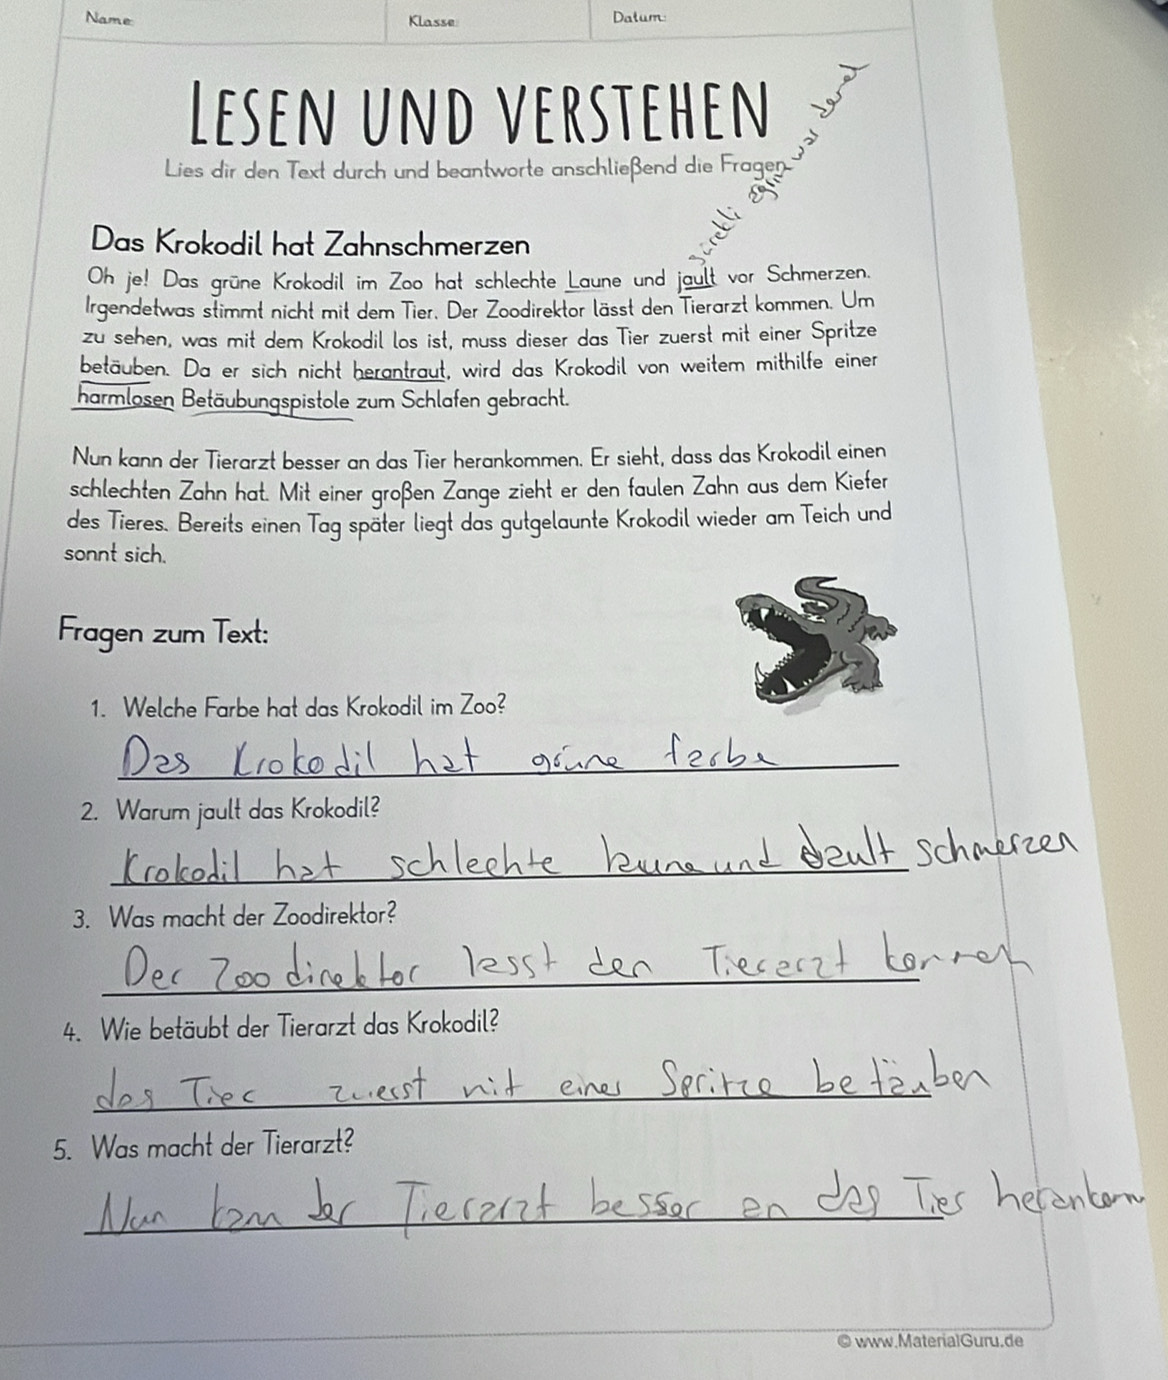 Name: Klasse: Datum:
LESEN UND VERSTEHEN
Lies dir den Text durch und beantworte anschließend die Fragen
sürekli ağrın var demek
Das Krokodil hat Zahnschmerzen
Oh je! Das grüne Krokodil im Zoo hat schlechte Laune und jault vor Schmerzen.
Irgendetwas stimmt nicht mit dem Tier. Der Zoodirektor lässt den Tierarzt kommen. Um
zu sehen, was mit dem Krokodil los ist, muss dieser das Tier zuerst mit einer Spritze
betäuben. Da er sich nicht herantraut, wird das Krokodil von weitem mithilfe einer
harmlosen Betäubungspistole zum Schlafen gebracht.
Nun kann der Tierarzt besser an das Tier herankommen. Er sieht, dass das Krokodil einen
schlechten Zahn hat. Mit einer großen Zange zieht er den faulen Zahn aus dem Kiefer
des Tieres. Bereits einen Tag später liegt das gutgelaunte Krokodil wieder am Teich und
sonnt sich.
Fragen zum Text:
1. Welche Farbe hat das Krokodil im Zoo?
Das Krokodil hat grüne farbe
2. Warum jault das Krokodil?
Krokodil hat schlechte laune und jault schmerzen
3. Was macht der Zoodirektor?
Der Zoodirektor lasst den Tierarzt kommen
4. Wie betäubt der Tierarzt das Krokodil?
das Tier zuerst mit einer Spritze betäuben
5. Was macht der Tierarzt?
Nun kann der Tierarzt besser an das Tier herankom
© www.MaterialGuru.de